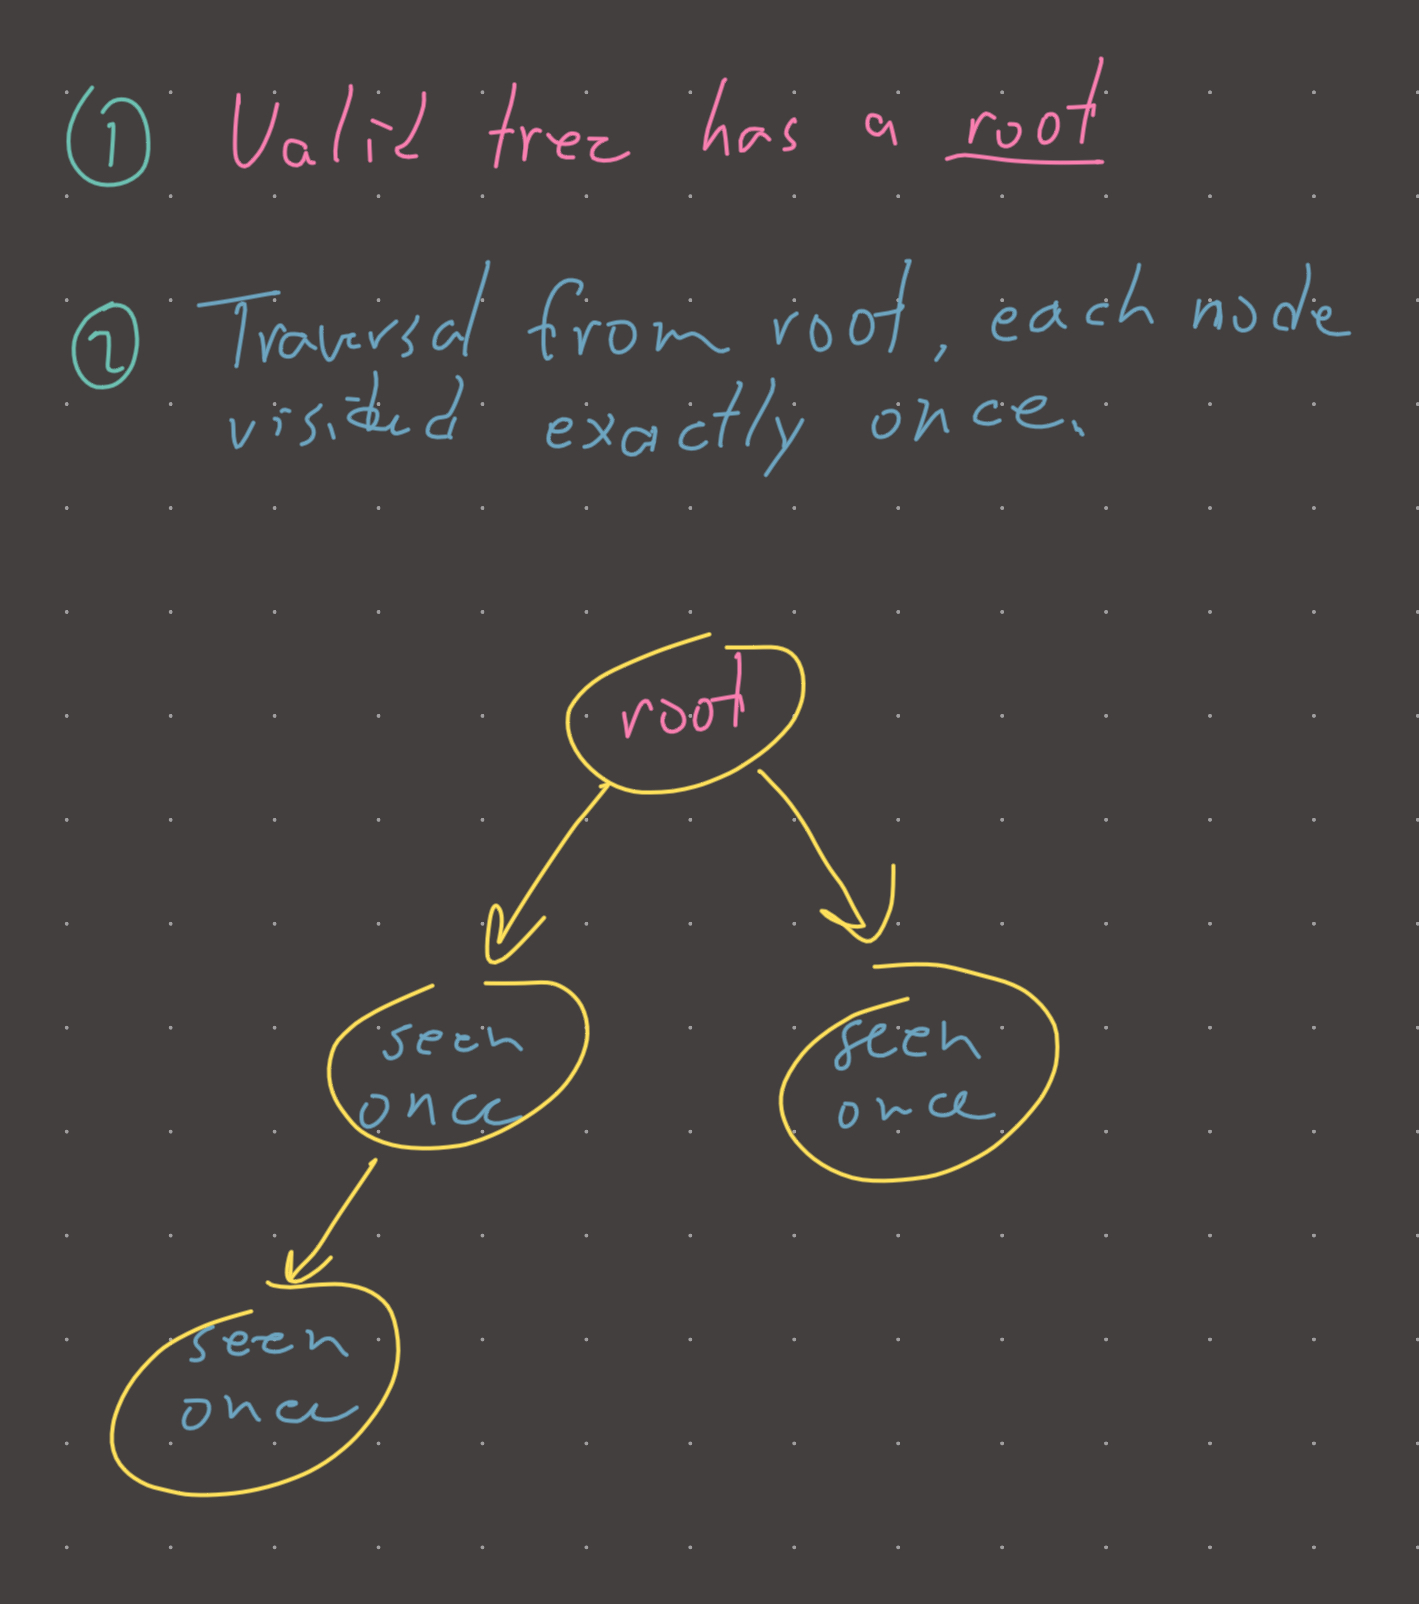 ① Valid tree has a root
② Traversal from root, each node
visited exactly once.
root
seen
once
seen
once
seen
once